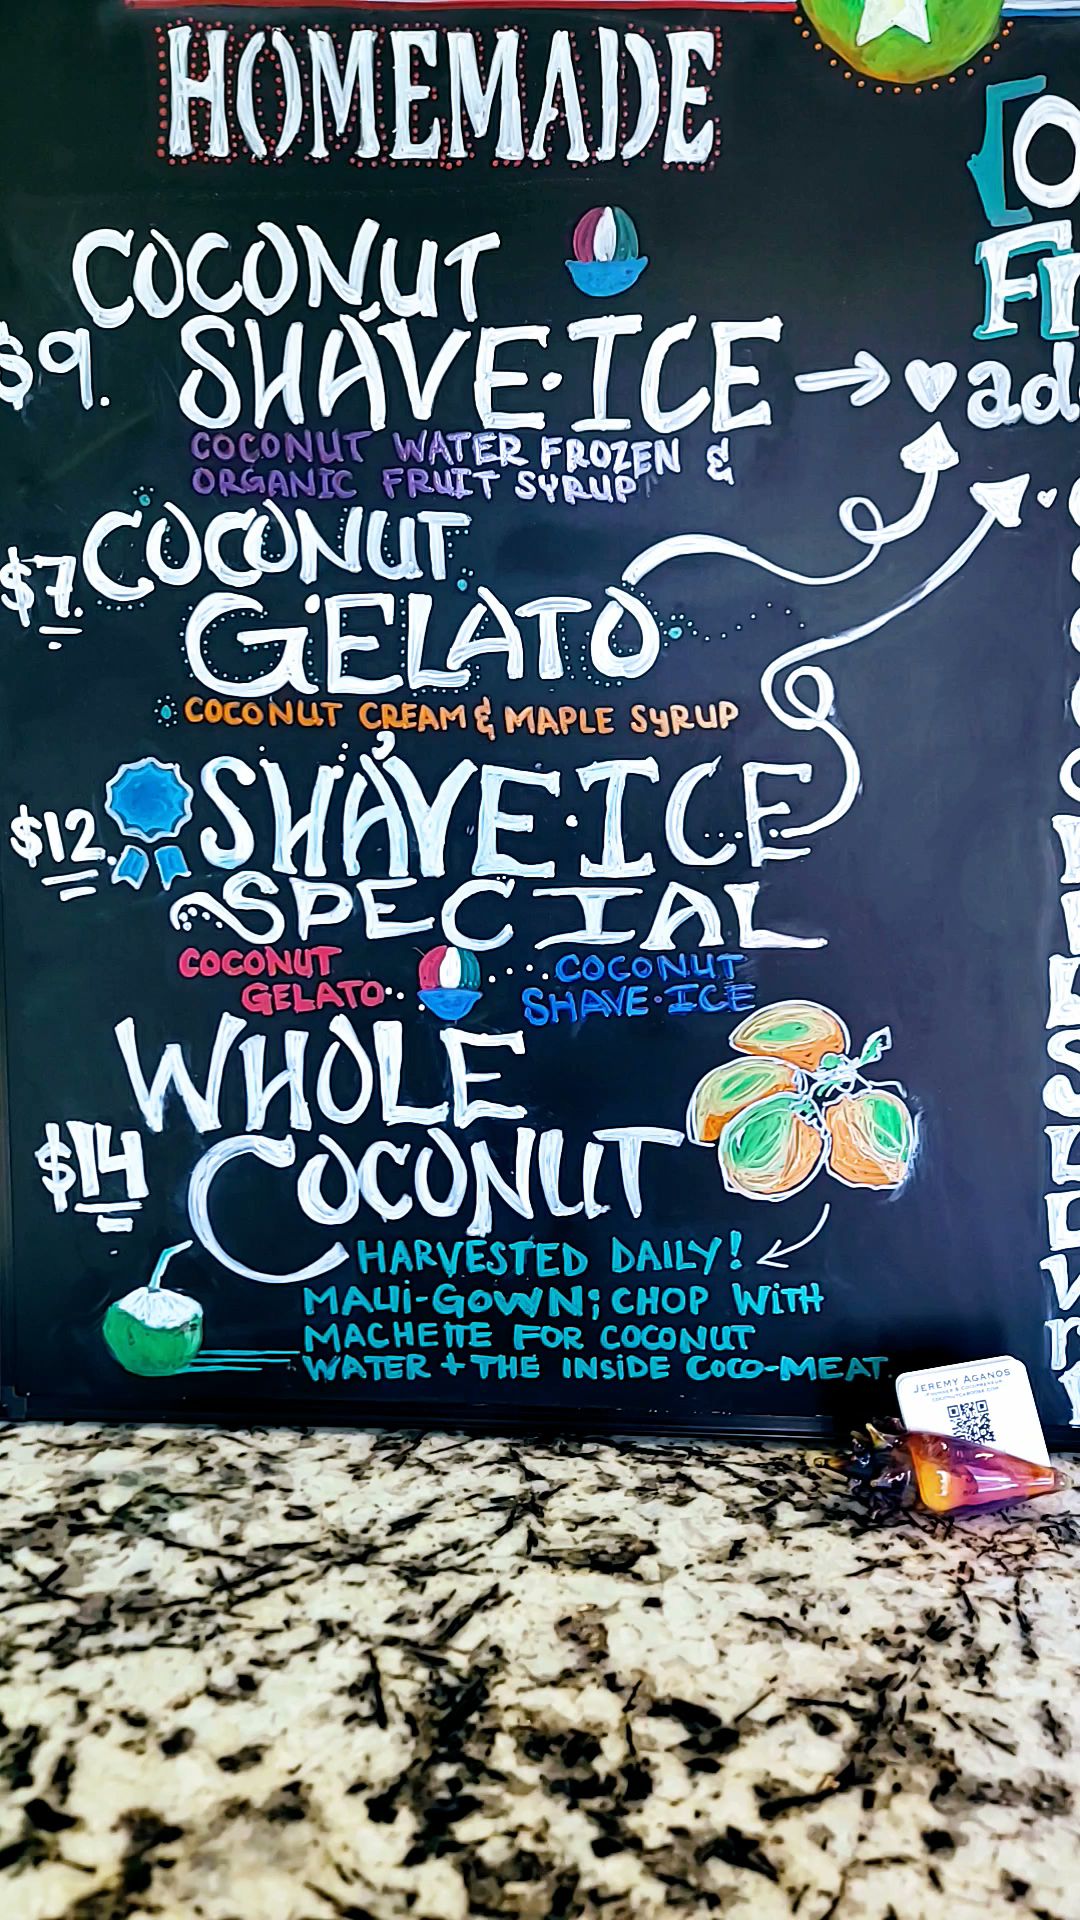 HOMEMADE
COCONUT
$9. SHAVE·ICE → ♥ad
COCONUT WATER FROZEN &
ORGANIC FRUIT SYRUP
COCONUT
$7. GELATO
COCONUT CREAM & MAPLE SYRUP
$12. SHAVE·ICE
SPECIAL
COCONUT
GELATO
COCONUT
SHAVE·ICE
WHOLE
$14 COCONUT
HARVESTED DAILY!
MAUI-GOWN; CHOP WITH
MACHETTE FOR COCONUT
WATER + THE INSIDE COCO-MEAT.
JEREMY AGANOS